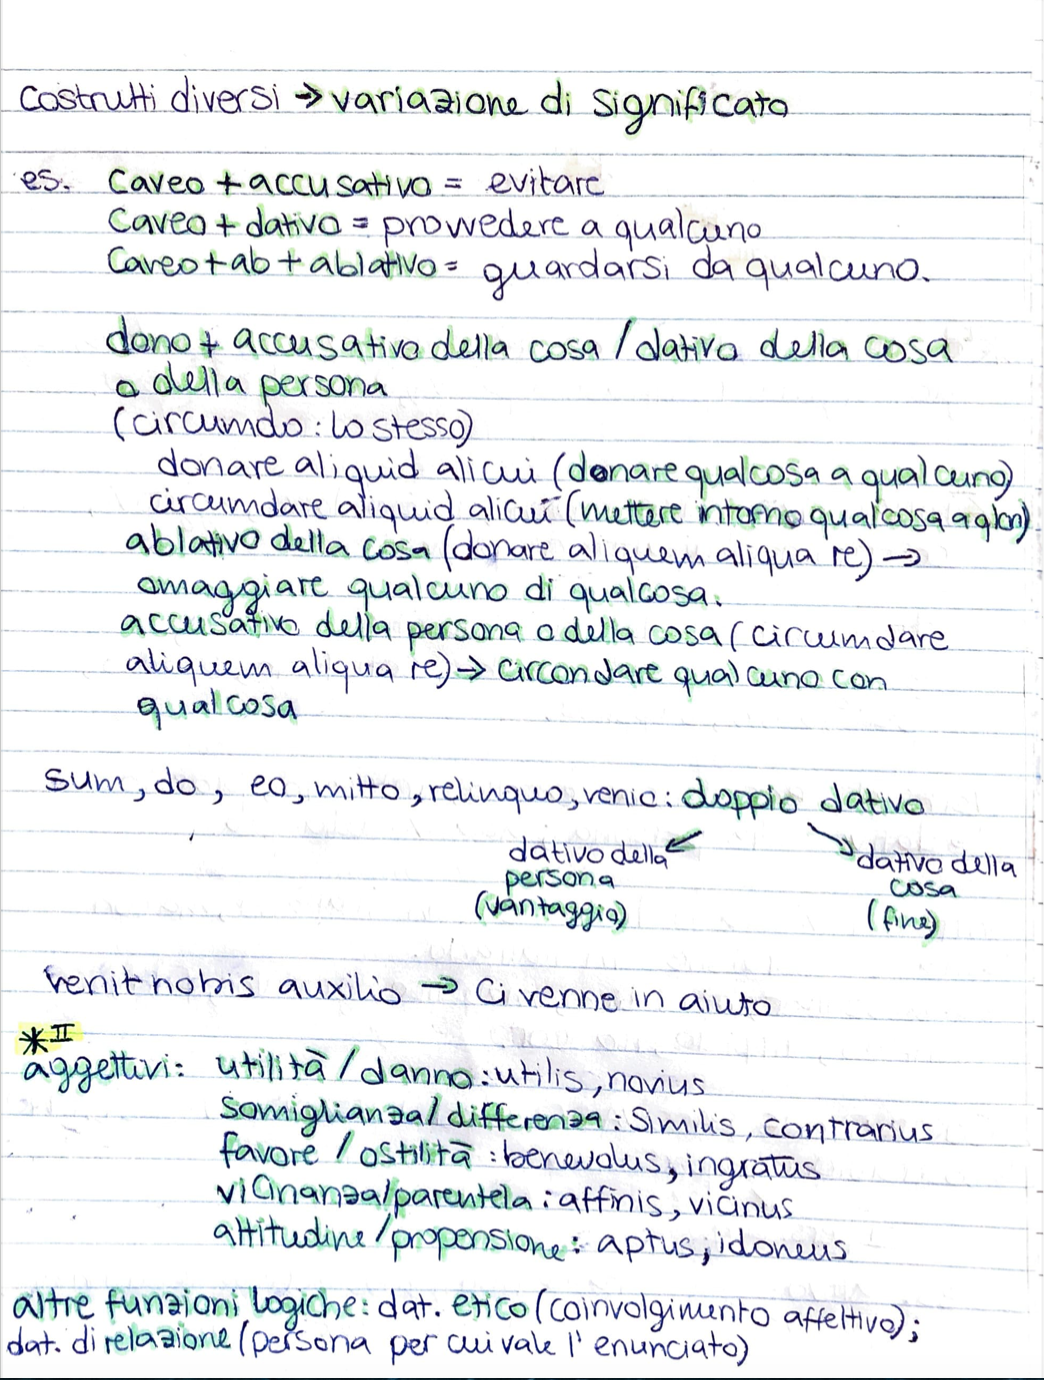 costrutti diversi → variazione di significato
es. Caveo + accusativo = evitare
Caveo + dativo = provvedere a qualcuno
Caveo + ab + ablativo = guardarsi da qualcuno.
dono + accusativo della cosa / dativo della cosa
o della persona
(circumdo : lo stesso)
donare aliquid alicui (donare qualcosa a qualcuno)
circumdare aliquid alicui (mettere intorno qualcosa a qlcn)
ablativo della cosa (donare aliquem aliqua re) →
omaggiare qualcuno di qualcosa.
accusativo della persona o della cosa (circumdare
aliquem aliqua re) → circondare qualcuno con
qualcosa
sum, do, eo, mitto, relinquo, venio : doppio dativo
dativo della
persona
(vantaggio)
dativo della
cosa
(fine)
venit nobis auxilio → Ci venne in aiuto
*II
aggettivi: utilità / danno : utilis, noxius
somiglianza / differenza : similis, contrarius
favore / ostilità : benevolus, ingratus
vicinanza / parentela : affinis, vicinus
attitudine / propensione : aptus, idoneus
altre funzioni logiche : dat. etico (coinvolgimento affettivo);
dat. di relazione (persona per cui vale l'enunciato)